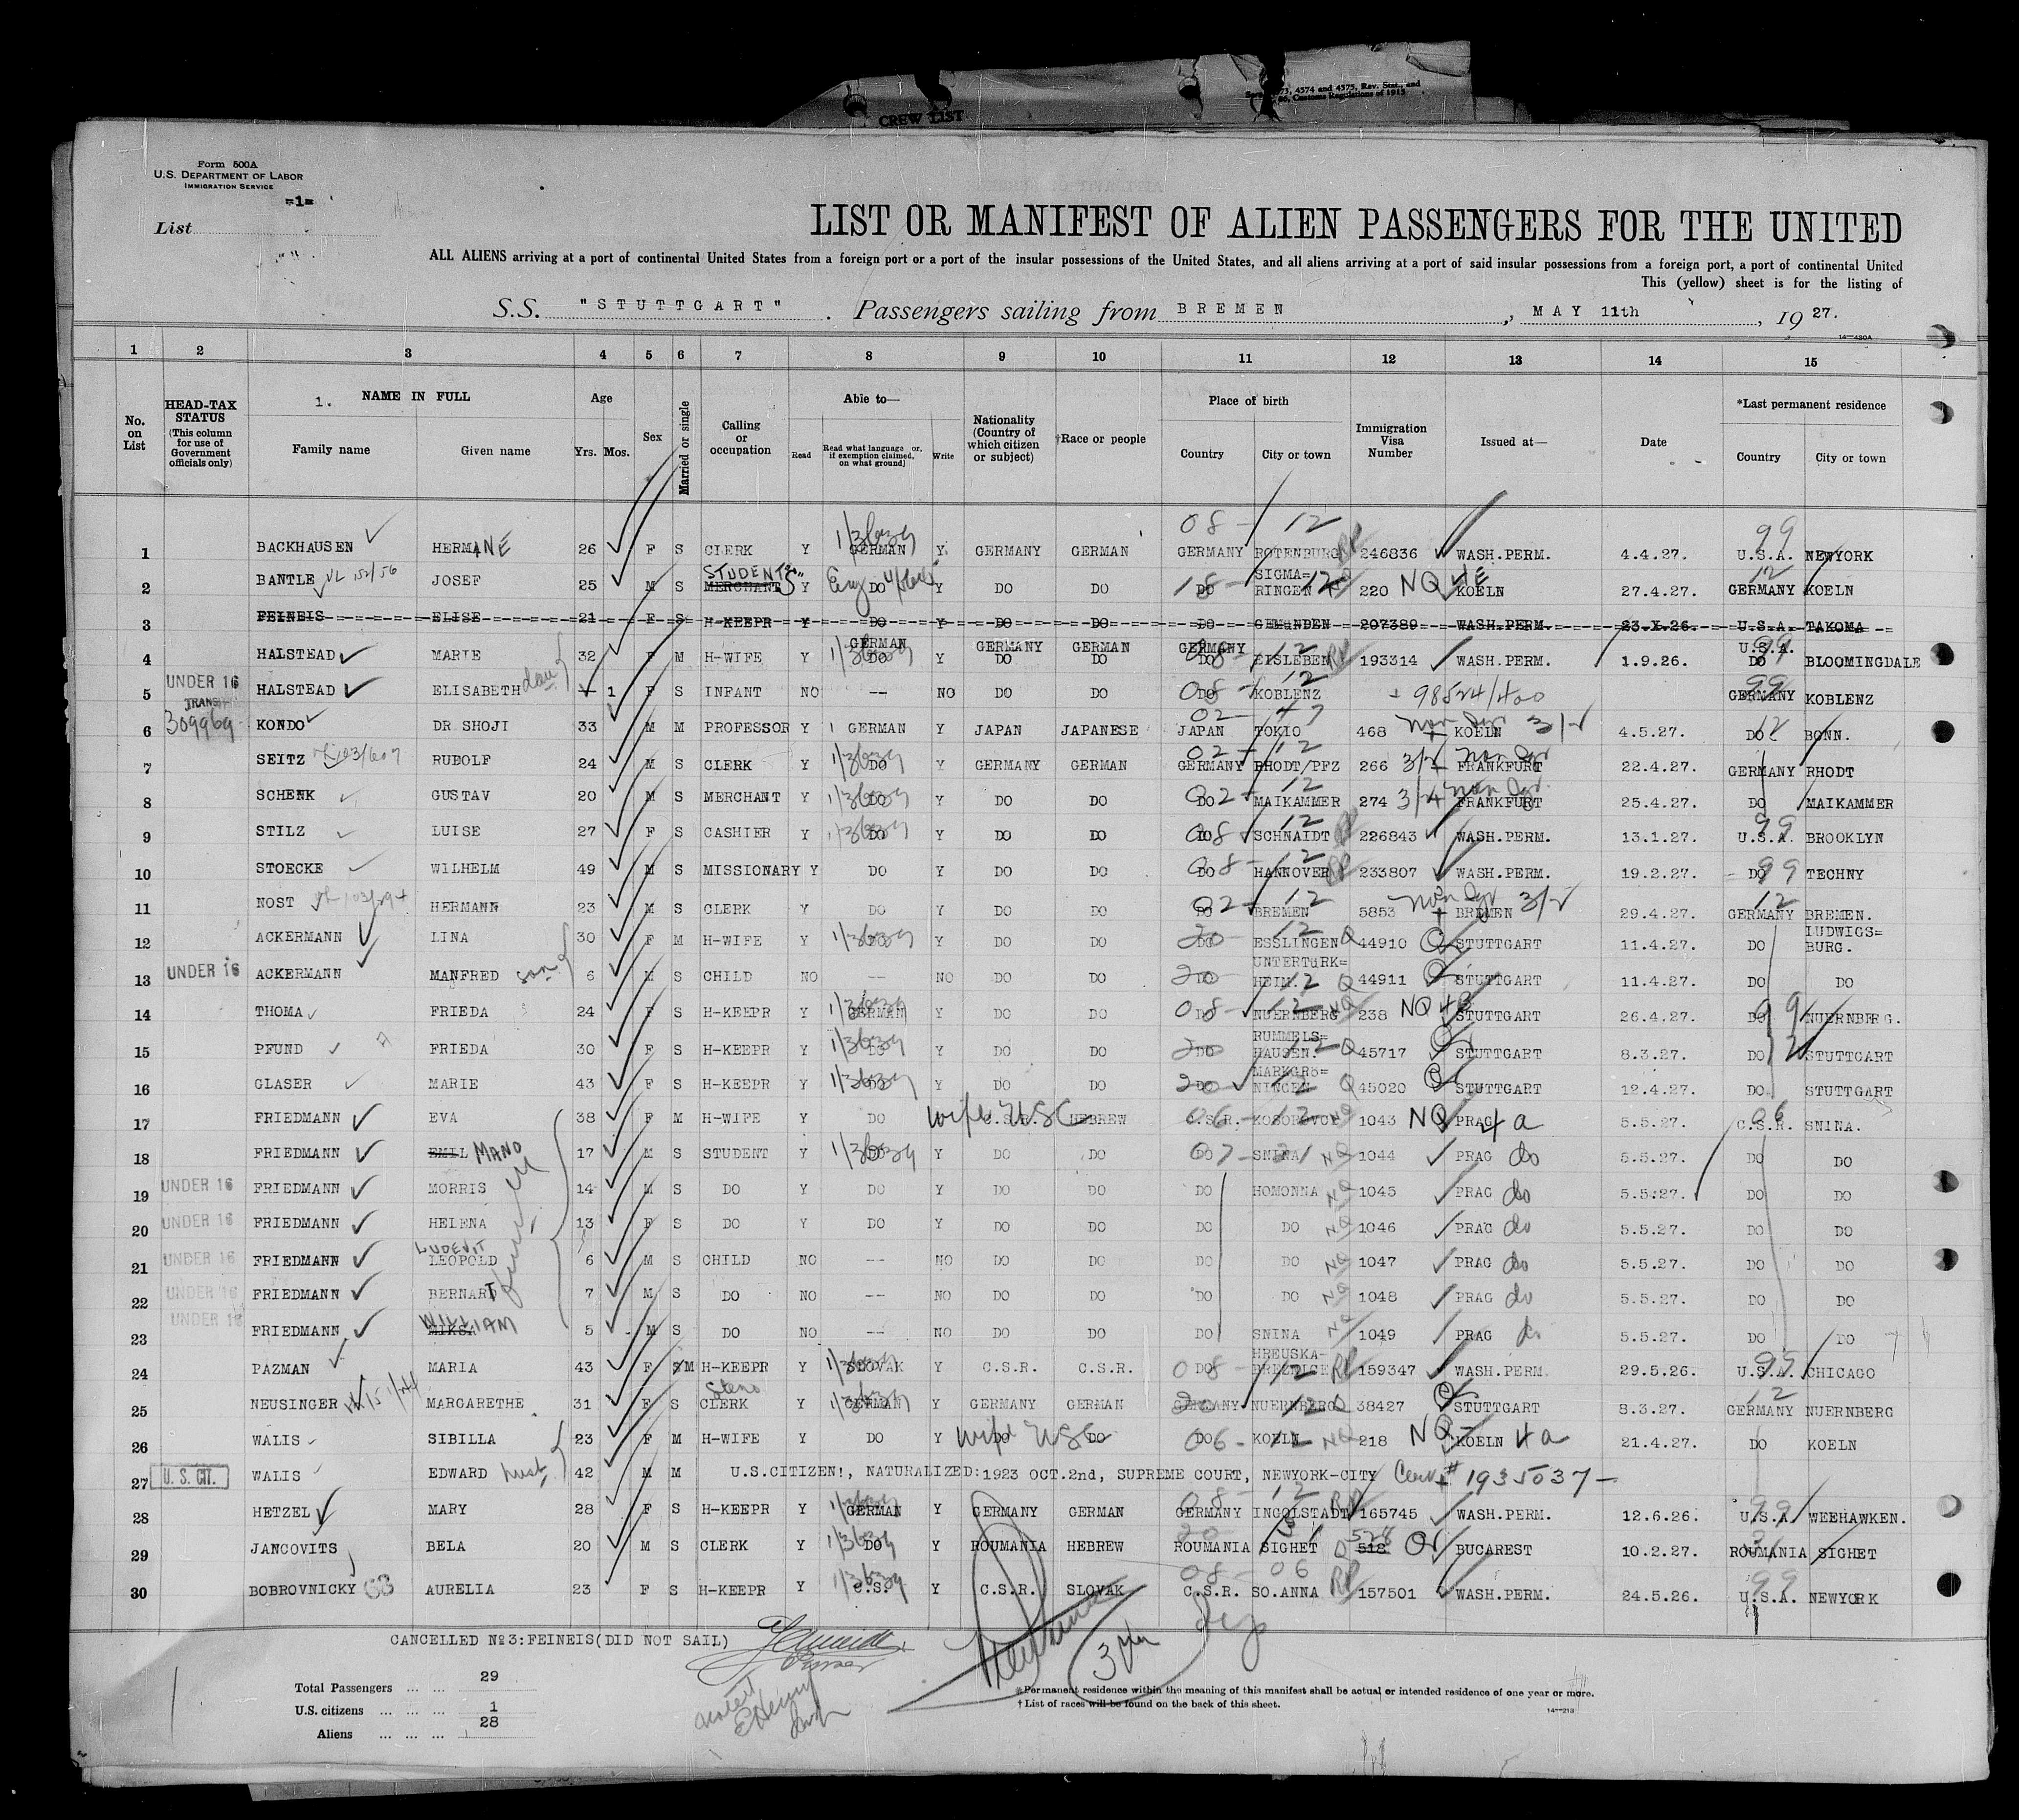 Sec. 4573, 4574 and 4575, Rev. Stat., and
Customs Regulations of 1915
CREW LIST
Form 500A
U.S. DEPARTMENT OF LABOR
IMMIGRATION SERVICE
=1=
List
LIST OR MANIFEST OF ALIEN PASSENGERS FOR THE UNITED
ALL ALIENS arriving at a port of continental United States from a foreign port or a port of the insular possessions of the United States, and all aliens arriving at a port of said insular possessions from a foreign port, a port of continental United
This (yellow) sheet is for the listing of
S.S. "STUTTGART". Passengers sailing from BREMEN, MAY 11th, 19 27.
14—430A
1 2 3 4 5 6 7 8 9 10 11 12 13 14 15
No. on List
HEAD-TAX STATUS (This column for use of Government officials only)
1. NAME IN FULL Family name Given name
Age Yrs. Mos.
Sex
Married or single
Calling or occupation
Able to— Read Read what language or, if exemption claimed, on what ground] Write
Nationality (Country of which citizen or subject)
†Race or people
Place of birth Country City or town
Immigration Visa Number
Issued at—
Date
*Last permanent residence Country City or town
1 BACKHAUSEN HERMINE 26 F S CLERK Y GERMAN Y GERMANY GERMAN GERMANY ROTENBURG RP 246836 WASH.PERM. 4.4.27. U.S.A. NEWYORK 08 - 12 99
2 BANTLE JOSEF 25 M S MERCHANT STUDENT Y DO Y DO DO DO SIGMA= RINGEN 220 NQ 4E KOELN 27.4.27. GERMANY KOELN 12
3 FEINEIS ELISE 21 F S H-KEEPR Y DO Y DO DO DO GEMUNDEN 207389 WASH.PERM. 23.X.26. U.S.A. TAKOMA
4 HALSTEAD MARIE 32 F M H-WIFE Y GERMAN DO Y GERMANY DO GERMAN DO GERMANY DO EISLEBEN RP 193314 WASH.PERM. 1.9.26. U.S.A. DO BLOOMINGDALE
5 UNDER 16 HALSTEAD ELISABETH dau 1 F S INFANT NO -- NO DO DO DO KOBLENZ 98524/400 GERMANY KOBLENZ
6 TRANSIT 309969 KONDO DR SHOJI 33 M M PROFESSOR Y GERMAN Y JAPAN JAPANESE JAPAN TOKIO 468 KOELN 4.5.27. DO BONN.
7 SEITZ RUDOLF 24 M S CLERK Y DO Y GERMANY GERMAN GERMANY RHODT/PFZ 266 FRANKFURT 22.4.27. GERMANY RHODT
8 SCHENK GUSTAV 20 M S MERCHANT Y DO Y DO DO DO MAIKAMMER 274 FRANKFURT 25.4.27. DO MAIKAMMER
9 STILZ LUISE 27 F S CASHIER Y DO Y DO DO DO SCHNAIDT 226843 WASH.PERM. 13.1.27. U.S.A. BROOKLYN
10 STOECKE WILHELM 49 M S MISSIONARY Y DO Y DO DO DO HANNOVER RP 233807 WASH.PERM. 19.2.27. DO TECHNY
11 NOST HERMANN 23 M S CLERK Y DO Y DO DO DO BREMEN 5853 BREMEN 29.4.27. GERMANY BREMEN.
12 ACKERMANN LINA 30 F M H-WIFE Y Y DO DO DO ESSLINGEN Q 44910 STUTTGART 11.4.27. DO LUDWIGS= BURG.
13 UNDER 16 ACKERMANN MANFRED son 6 M S CHILD NO -- NO DO DO DO UNTERTURK= HEIM. Q 44911 STUTTGART 11.4.27. DO DO
14 THOMA FRIEDA 24 F S H-KEEPR Y GERMAN Y DO DO DO NUERNBERG 238 NQ STUTTGART 26.4.27. DO NUERNBERG.
15 PFUND FRIEDA 30 F S H-KEEPR Y DO Y DO DO DO RUMMELS= HAUSEN. Q 45717 STUTTGART 8.3.27. DO STUTTGART
16 GLASER MARIE 43 F S H-KEEPR Y DO Y DO DO DO MARKGRÖ= NINGEN Q 45020 STUTTGART 12.4.27. DO STUTTGART
17 FRIEDMANN EVA 38 F M H-WIFE Y DO wife USC C.S.R. HEBREW C.S.R. 1043 NQ PRAG 4a 5.5.27. C.S.R. SNINA.
18 FRIEDMANN EMIL MANO 17 M S STUDENT Y DO Y DO DO DO SNINA NQ 1044 PRAG do 5.5.27. DO DO
19 UNDER 16 FRIEDMANN MORRIS 14 M S DO Y DO Y DO DO DO HOMONNA NQ 1045 PRAG do 5.5.27. DO DO
20 UNDER 16 FRIEDMANN HELENA 13 F S DO Y DO Y DO DO DO DO NQ 1046 PRAG do 5.5.27. DO DO
21 UNDER 16 FRIEDMANN LUDEVIT LEOPOLD 6 M S CHILD NO -- NO DO DO DO DO NQ 1047 PRAG do 5.5.27. DO DO
22 UNDER 16 FRIEDMANN BERNART 7 M S DO NO -- NO DO DO DO DO NQ 1048 PRAG do 5.5.27. DO DO
23 UNDER 16 FRIEDMANN WILLIAM MIKSA 5 M S DO NO -- NO DO DO DO SNINA NQ 1049 PRAG do 5.5.27. DO DO
24 PAZMAN MARIA 43 F S M H-KEEPR Y SLOVAK Y C.S.R. C.S.R. DO HREUSKA- BREZNICE RP 159347 WASH.PERM. 29.5.26. U.S.A. CHICAGO
25 NEUSINGER MARGARETHE 31 F S Steno CLERK Y GERMAN Y GERMANY GERMAN GERMANY NUERNBERG Q 38427 STUTTGART 8.3.27. GERMANY NUERNBERG
26 WALIS SIBILLA 23 F M H-WIFE Y DO Y DO wife USC DO DO KOELN NQ 218 NQ KOELN 4a 21.4.27. DO KOELN
27 U.S. CIT. WALIS EDWARD husb 42 M M U.S.CITIZEN!, NATURALIZED: 1923 OCT.2nd, SUPREME COURT, NEWYORK-CITY # 1935037 —
28 HETZEL MARY 28 F S H-KEEPR Y GERMAN Y GERMANY GERMAN GERMANY INGOLSTADT RP 165745 WASH.PERM. 12.6.26. U.S.A. WEEHAWKEN.
29 JANCOVITS BELA 20 M S CLERK Y DO Y ROUMANIA HEBREW ROUMANIA SIGHET 518 BUCAREST 10.2.27. ROUMANIA SIGHET
30 BOBROVNICKY 63 AURELIA 23 F S H-KEEPR Y C.S. Y C.S.R. SLOVAK C.S.R. SO.ANNA RP 157501 WASH.PERM. 24.5.26. U.S.A. NEWYORK
CANCELLED No3:FEINEIS(DID NOT SAIL)
Purser
Total Passengers ... ... 29
U.S. citizens ... ... ... 1
Aliens ... ... ... 28
*Permanent residence within the meaning of this manifest shall be actual or intended residence of one year or more.
†List of races will be found on the back of this sheet.
14—213